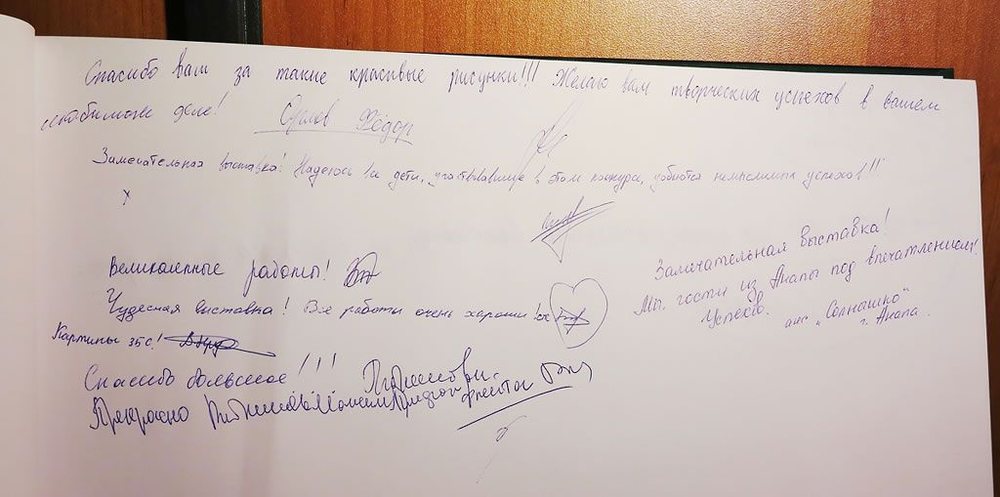 Спасибо вам за такие красивые рисунки!!! Желаю вам творческих успехов в вашем
любимом деле! Орлов Фёдор
Замечательная выставка! Надеюсь дети, участвовавшие в этом конкурсе, добьются немыслимых успехов!!
Великолепные работы!
Чудесная выставка! Все работы очень хороши!
Картины
Спасибо большое!!!
Прекрасно
Замечательная выставка!
Мы, гости из Анапы под впечатлением!
Успехов.
"Солнышко"
г. Анапа.